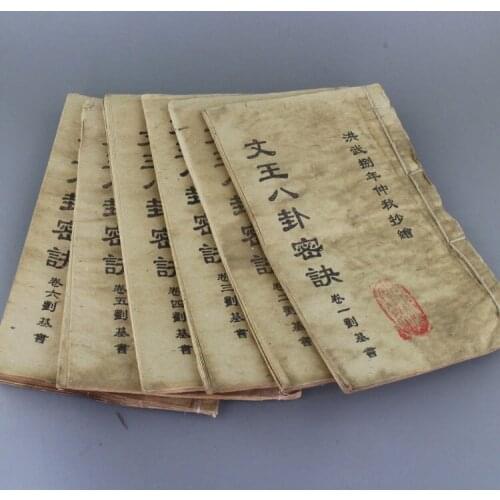 洪武捌年仲秋抄繪
文王八卦密訣
卷一劉基書
卷二
卷三劉基書
卦密訣
卷四劉基書
卦密訣
卷五劉基書
卦密訣
卷六劉基書